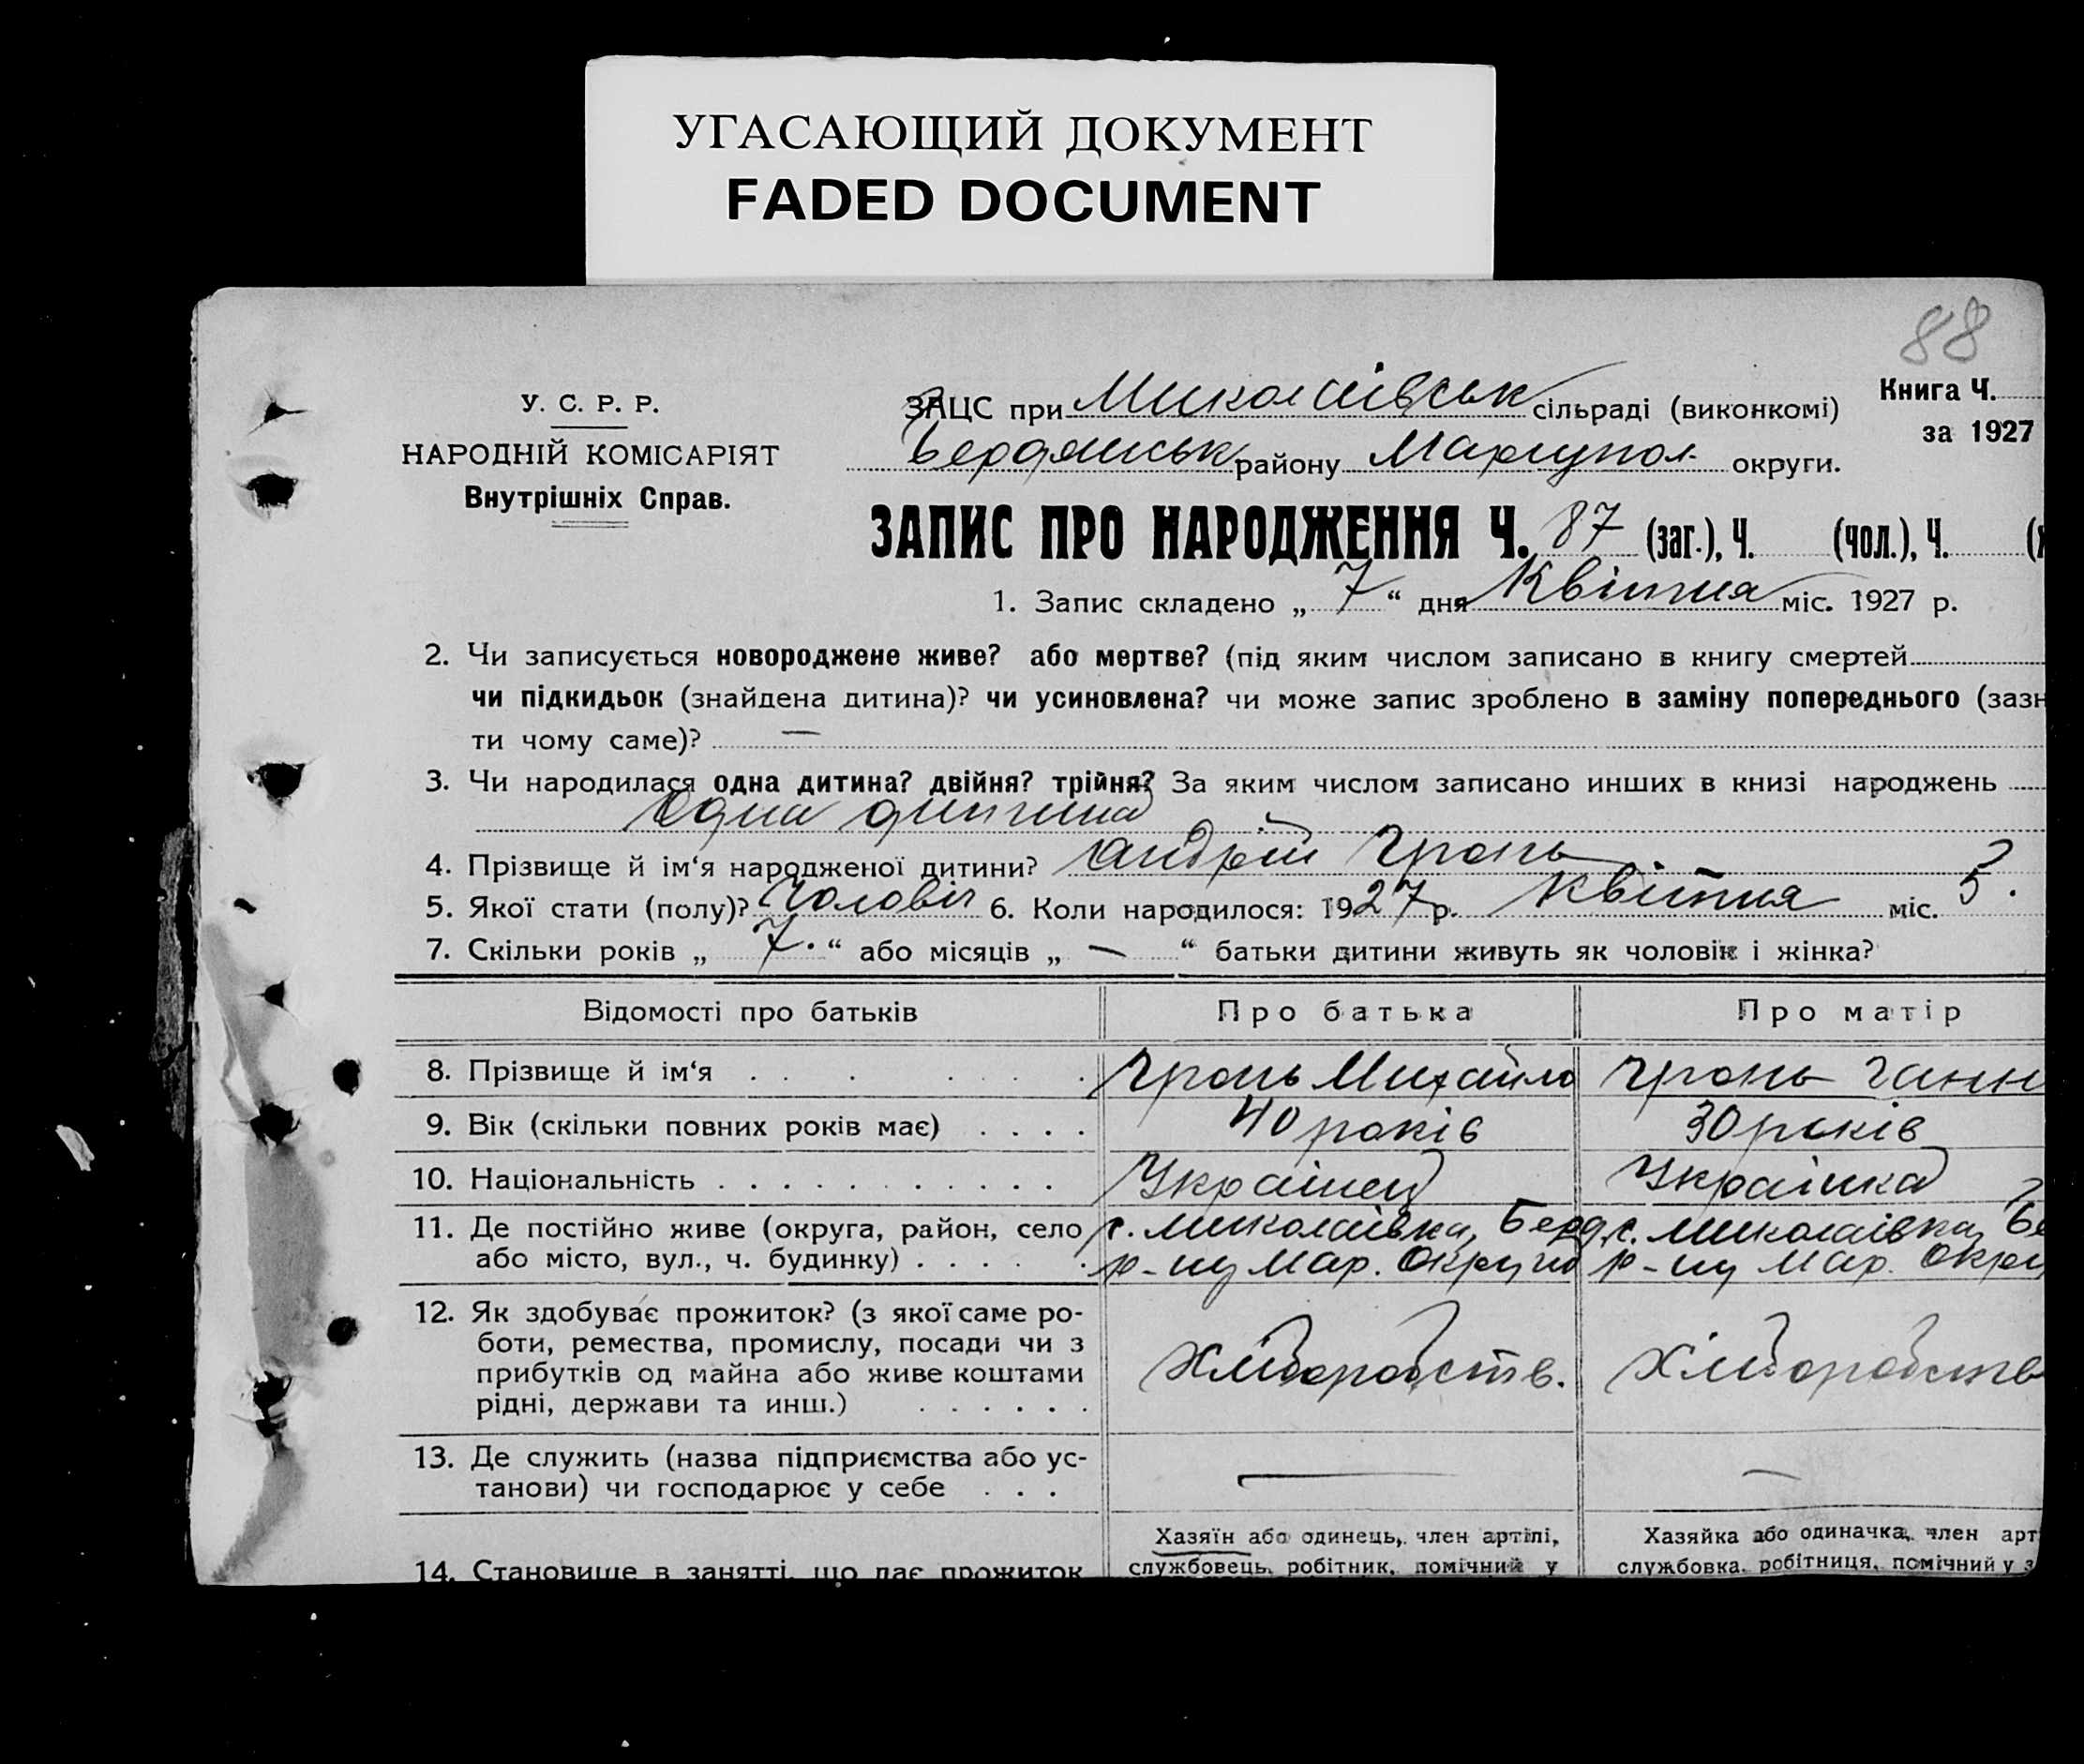 УГАСАЮЩИЙ ДОКУМЕНТ
FADED DOCUMENT
88
У. С. Р. Р.
НАРОДНІЙ КОМІСАРІЯТ
Внутрішніх Справ.
ЗАЦС при Миколаївськ сільраді (виконкомі)
Бердянськ району Маріупол. округи.
Книга Ч.
за 1927
ЗАПИС ПРО НАРОДЖЕННЯ Ч. 87 (заг.), Ч. (чол.), Ч.
1. Запис складено „ 7 “ дня Квітня міс. 1927 р.
2. Чи записується новороджене живе? або мертве? (під яким числом записано в книгу смертей
чи підкидьок (знайдена дитина)? чи усиновлена? чи може запис зроблено в заміну попереднього (зазн
ти чому саме)? —
3. Чи народилася одна дитина? двійня? трійня? За яким числом записано инших в книзі народжень
Одна дитина
4. Прізвище й ім‘я народженої дитини? Андрій Гронь
5. Якої стати (полу)? Чоловіч 6. Коли народилося: 1927 р. Квітня міс. 5.
7. Скільки років „ 7. “ або місяців „ — “ батьки дитини живуть як чоловік і жінка?
Відомості про батьків Про батька Про матір
8. Прізвище й ім‘я Гронь Михайло Гронь Ганн
9. Вік (скільки повних років має) 40 років 30 років
10. Національність Українец Українка
11. Де постійно живе (округа, район, село с. Миколаївка, Берд. с. Миколаївка, Бе
або місто, вул., ч. будинку) р-ну Мар. Округи р-ну Мар. Окру
12. Як здобуває прожиток? (з якої саме ро-
боти, ремества, промислу, посади чи з
прибутків од майна або живе коштами Хліборобств. Хліборобств
рідні, держави та инш.)
13. Де служить (назва підприємства або ус-
танови) чи господарює у себе — —
Хазяїн або одинець, член артілі, Хазяйка або одиначка, член арт
14. Становище в занятті, що дає прожиток службовець, робітник, помічний у службовка, робітниця, помічний у з